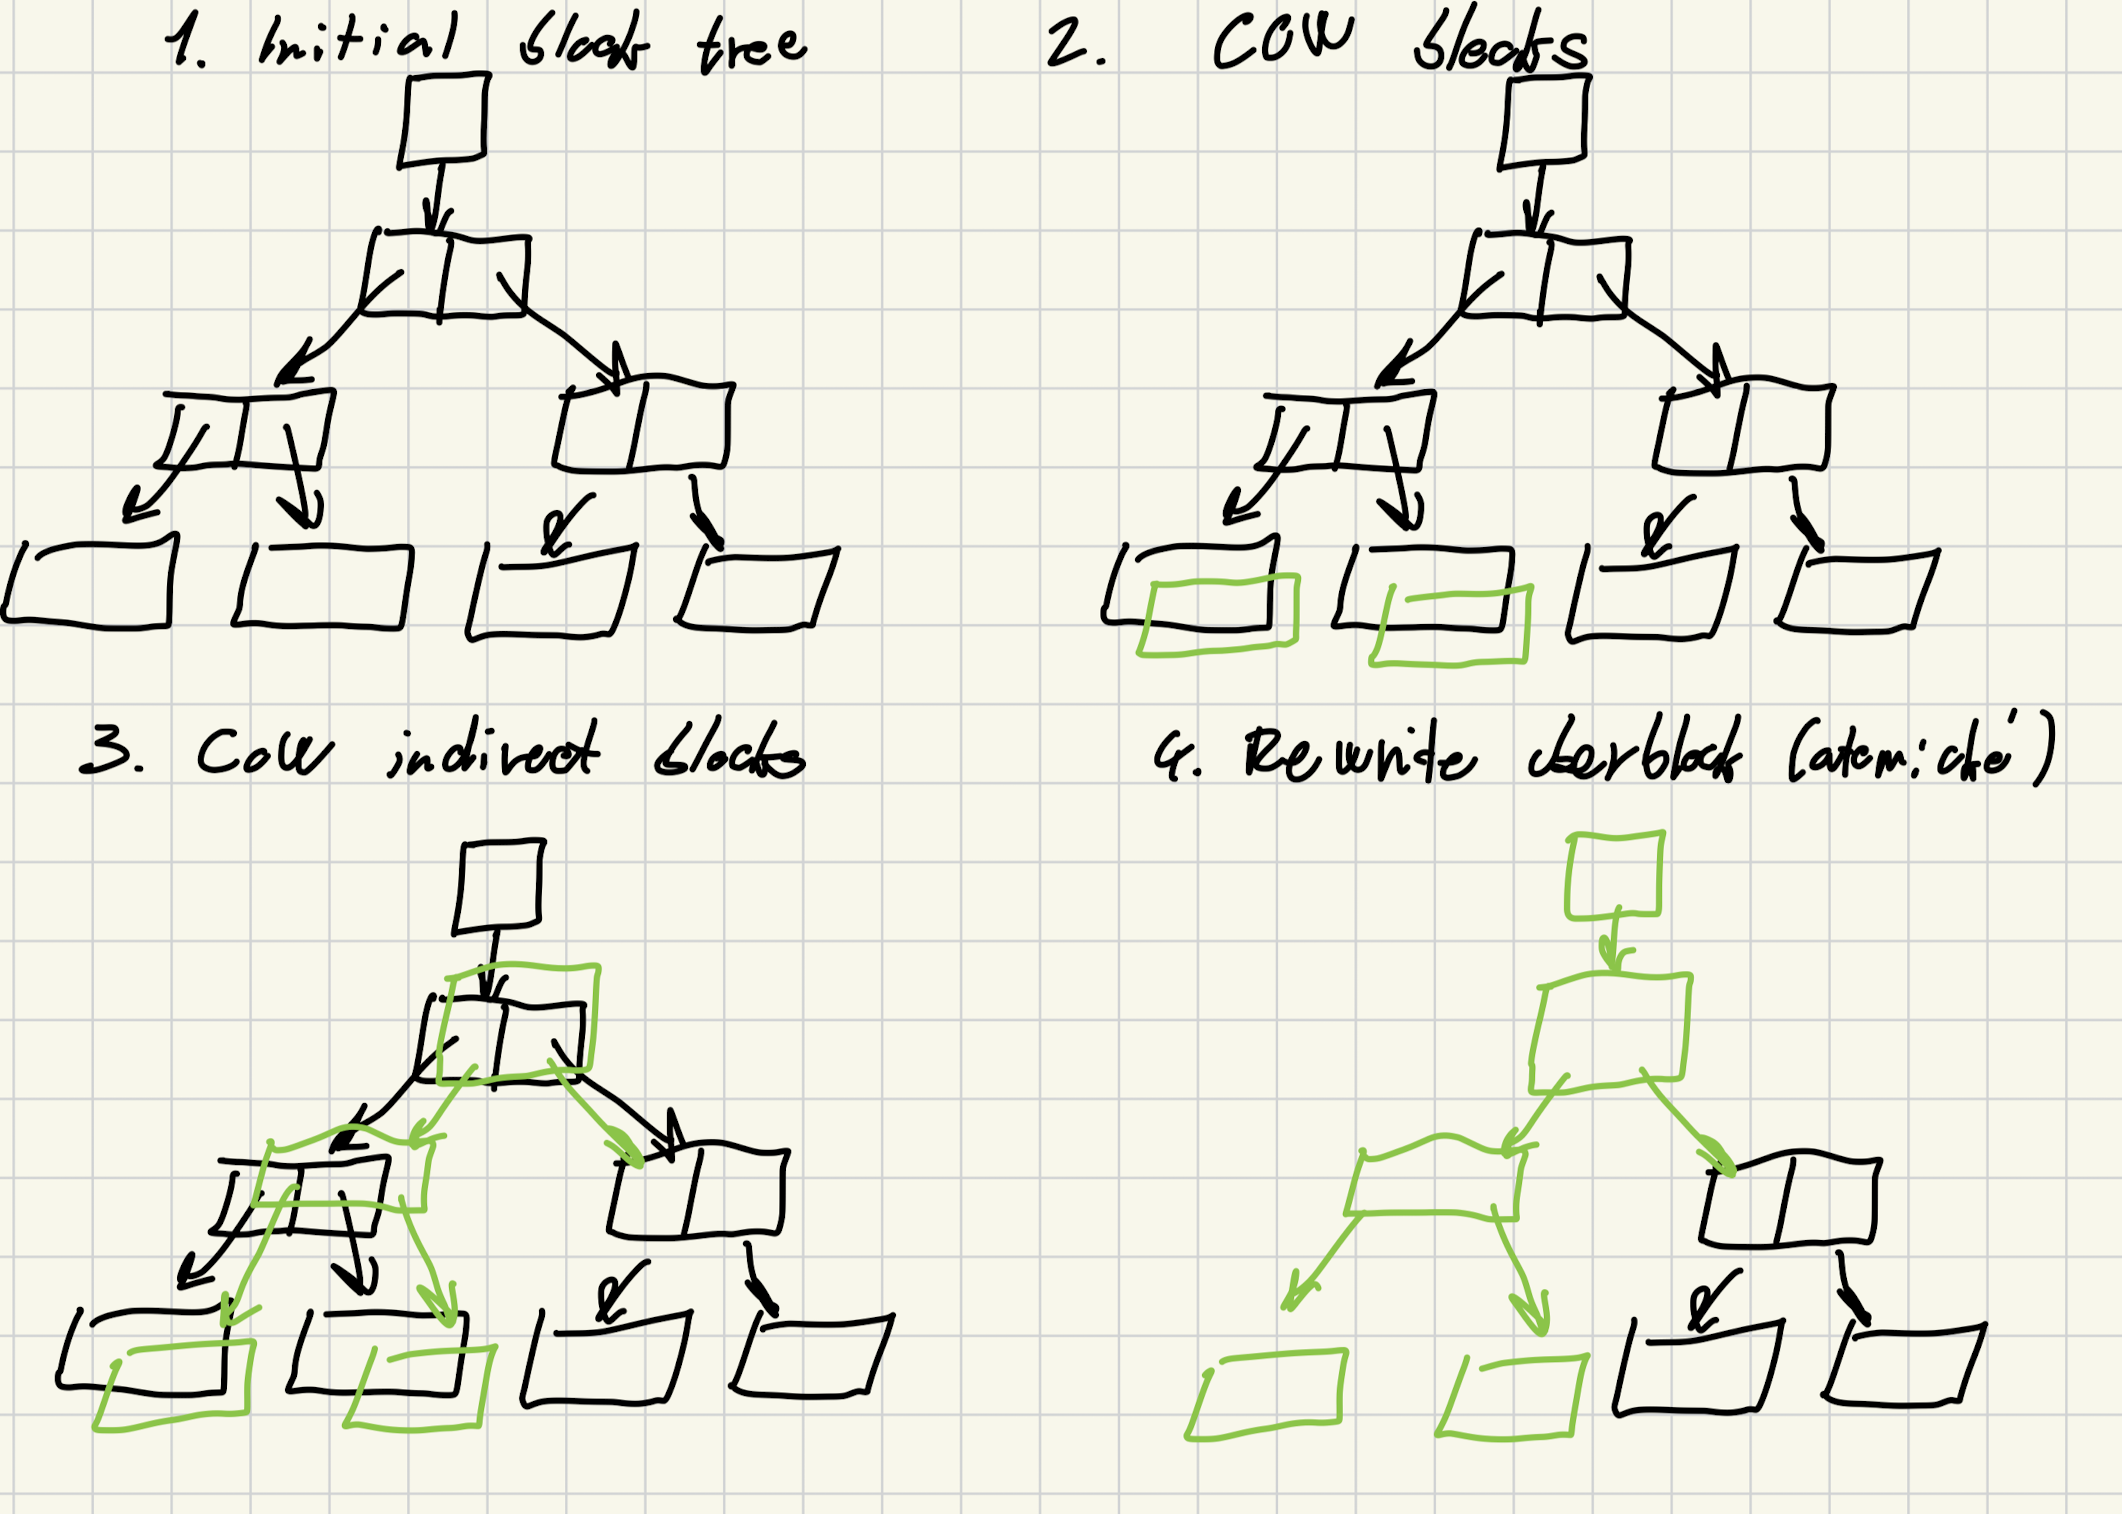 1. Initial block tree
2. COW blocks
3. CoW indirect blocks
4. Rewrite uberblock (atomické)